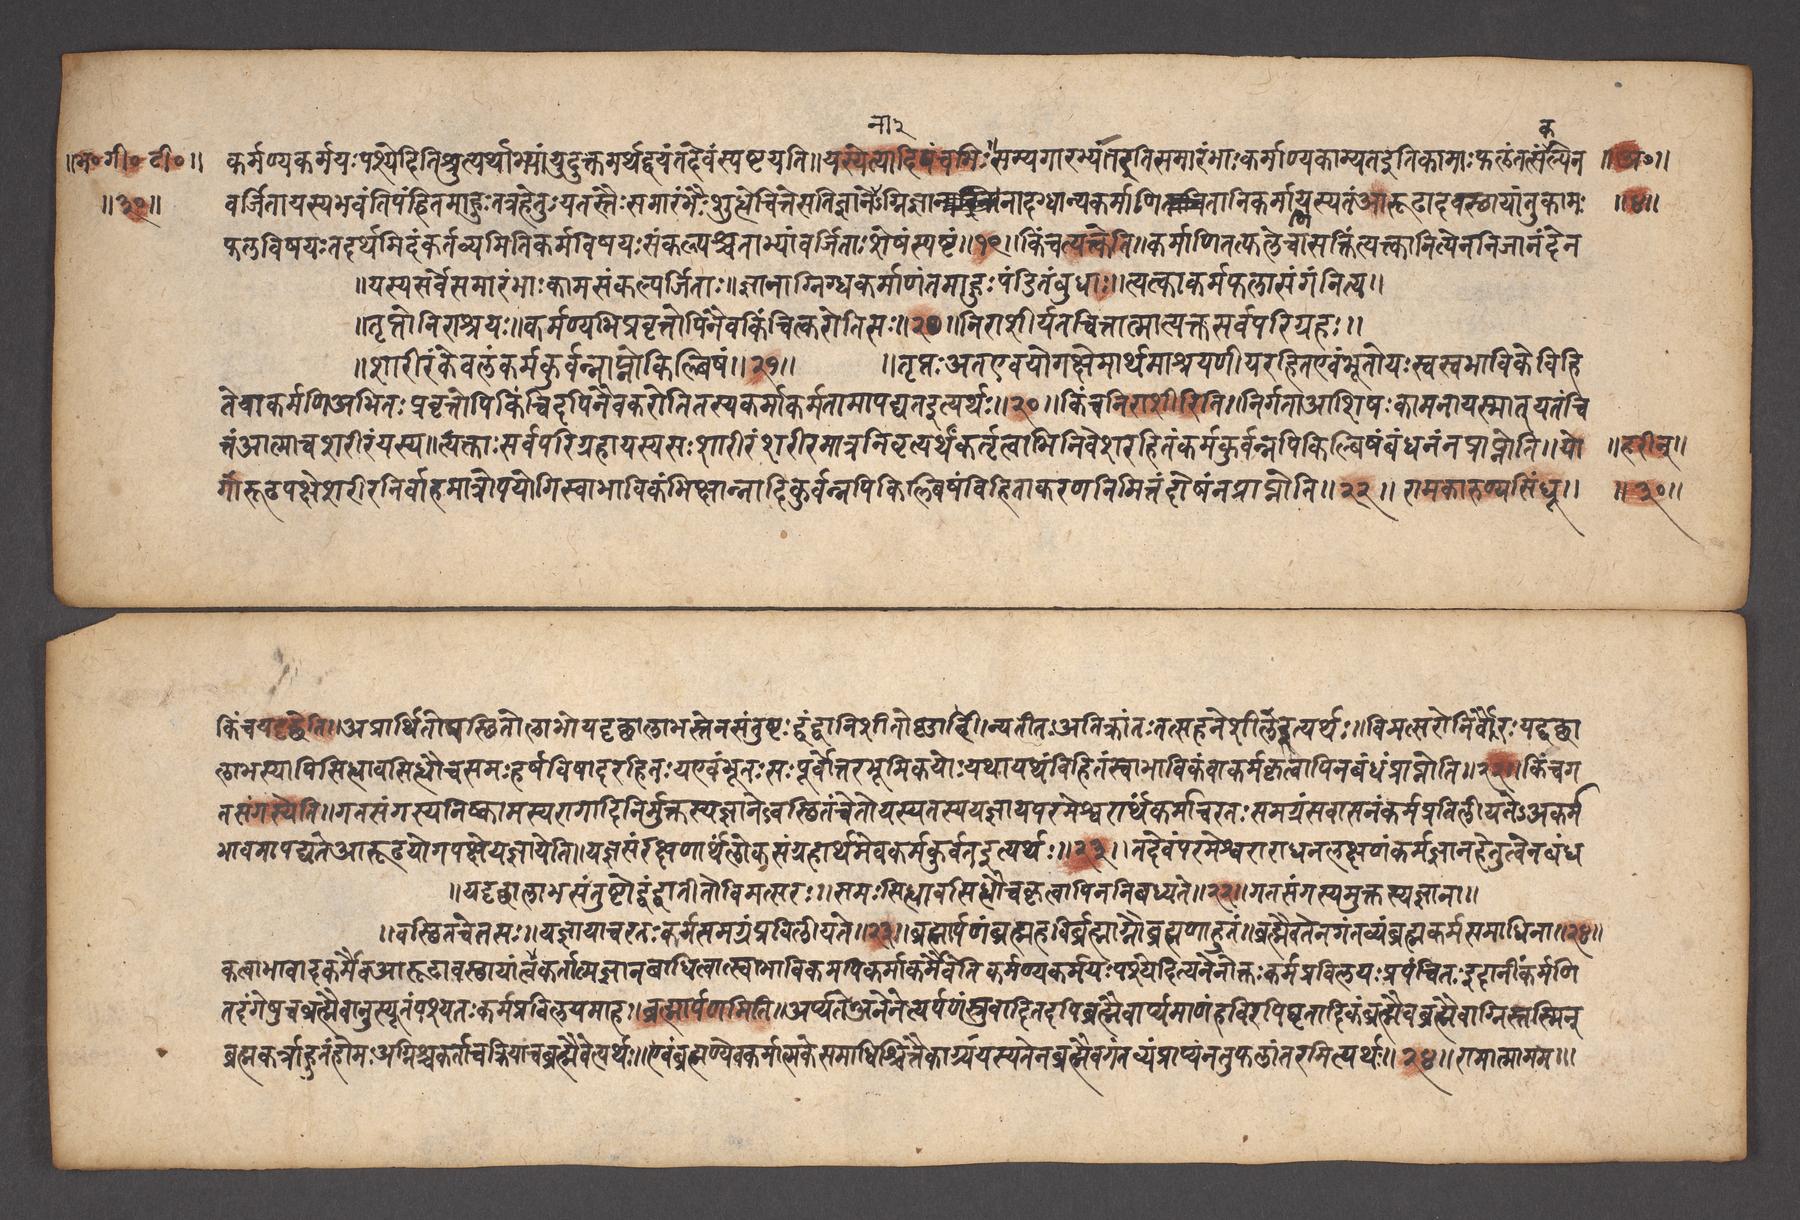 ना२
क
॥भ॰गी॰टी॰॥ कर्मण्यकर्मयःपश्येदितिश्रुत्यर्थाभ्यांयुदुक्तमर्थद्वयंतदेवंस्पष्टयति॥यस्येत्यादिपंचभिः॥सम्यगारभ्यंतइतिसमारंभाःकर्माण्यकाम्यतइतिकामाःफलंतत्संल्पेन ॥अ॰॥
॥३०॥ वर्जितायस्यभवंतिपंडितमाहुःतत्रहेतुःयतस्तैःसमारंभैःशुद्धेचित्तेसतिज्ञानेऽग्निज्ञा नादग्धान्यकर्माणि तानिकर्माणियस्यतंआरूढादवस्थायांतुकामः ॥४॥
फलविषयःतदर्थमिदंकर्तव्यमितिकर्मविषयःसंकल्पश्चताभ्यांवर्जिताःशेषंस्पष्टं॥१९॥किंचत्यत्केति॥कर्माणितत्फलेचासक्तिंत्यत्कानित्येननिजानंदेन
॥यस्यसर्वेसमारंभाःकामसंकल्पर्जिताः॥ज्ञानाग्निग्धकर्माणंतमाहुःपंडितंबुधाः॥त्यत्काकर्मफलासंगंनित्य॥
॥तृप्तोनिराश्रयः॥कर्मण्यभिप्रवृत्तोपिनैवकिंचित्करोतिसः॥२०॥निराशीर्यतचित्तात्मात्यक्तसर्वपरिग्रहः॥
॥शारीरंकेवलंकर्मकुर्वन्नाप्नोकिल्बिषं॥२१॥ ॥तृप्तःअतएवयोगक्षेमार्थमाश्रयणीयरहितएवंभूतोयःस्वस्वभाविकेविहि
तेवाकर्मणिअभितःप्रवृत्तोपिकिंचिदपिनैवकरोतितस्यकर्माकर्मतामापद्यतइत्यर्थः॥२०॥किंचनिराशीरिति॥निर्गताआशिषःकामनायस्मात्यतंचि
त्तंआत्माचशरीरंयस्य॥त्यक्ताःसर्वपरिग्रहायस्यसःशारीरंशरीरमात्रनिवृत्यर्थंकर्तृत्वाभिनिवेशरहितंकर्मकुर्वन्नपिकिल्बिषंबंधनंनप्राप्नोति॥यो ॥हरीन्॥
गारूढपक्षेशरीरनिर्वाहमात्रोपयोगिस्वाभाविकंभिक्षान्नादिकुर्वन्नपिकिल्बिषंविहिताकरणनिमित्तंदोषंनप्राप्नोति॥२२॥रामकारुण्यसिंधू॥ ॥३०॥
किंचयदृच्छेति॥अप्रार्थितोपस्थितोलाभोयदृच्छालाभस्तेनसंतुष्टःद्वंद्वानिशीतोष्णादीनि॥न्यतीतःअतिक्रांतःतत्सहनेशीलइत्यर्थः॥विमत्सरोनिर्वैरःयदृच्छा
लाभस्यापिसिध्यावसिध्यौचसमःहर्षविषादरहितःयएवंभूतःसःपूर्वोत्तरभूमिकयोःयथायथंविहितंस्वाभाविकंवाकर्मकृत्वापिनबंधंप्राप्नोति॥२२॥किंचग
तसंगस्येति॥गतसंगस्यनिष्कामस्यरागादिनिर्मुक्तस्यज्ञानेऽवस्थितंचेतोयस्यतस्ययज्ञायपरमेश्वरार्थंकर्माचरतःसमग्रंसवासनंकर्मप्रविलीयतेऽअकर्म
भावमापद्यतेआरूढयोगपक्षेयज्ञायेति॥यज्ञसंरक्षणार्थंलोकसंग्रहार्थमेवकर्मकुर्वतइत्यर्थः॥२३॥तदेवंपरमेश्वराराधनलक्षणंकर्मज्ञानहेतुत्वेनबंध
॥यदृच्छालाभसंतुष्टोद्वंद्वातीतोविमत्सरः॥समःसिध्यावसिध्यौचकृत्वापिननिबध्यते॥२२॥गतसंगस्यमुक्तस्यज्ञाना॥
॥वस्थितचेतसः॥यज्ञायाचरतःकर्मसमग्रंप्रविलीयते॥२३॥ब्रह्मार्पणंब्रह्महविर्ब्रह्माग्नौब्रह्मणाहुतं॥ब्रह्मैवतेनगंतव्यंब्रह्मकर्मसमाधिना॥२४॥
कत्वाभावादकर्मैवआरूढावस्थायांत्वकर्तात्मज्ञानबाधित्वात्स्वाभाविकमपिकर्माकर्मैवेतिकर्मण्यकर्मयःपश्येदित्यनेनोक्तःकर्मप्रविलयःप्रपंचितःइदानींकर्मणि
तदंगेषुचब्रह्मैवानुस्यूतंपश्यतःकर्मप्रविलयमाह॥ब्रह्मार्पणमिति॥अर्प्यतेअनेनेत्यर्पणंस्रुवादितदपिब्रह्मैवार्प्यमाणंहविरपिघृतादिकंब्रह्मैवब्रह्मैवाग्निस्तस्मिन्
ब्रह्मकर्त्राहुतंहोमःअग्निश्चकर्ताचक्रियाचब्रह्मैवेत्यर्थः॥एवंब्रह्मण्येवकर्मात्मकेसमाधिश्चित्तैकाग्र्ययस्यतेनब्रह्मैवगंतव्यंप्राप्यंनतुफलांतरमित्यर्थः॥२४॥रामात्मारामम॥